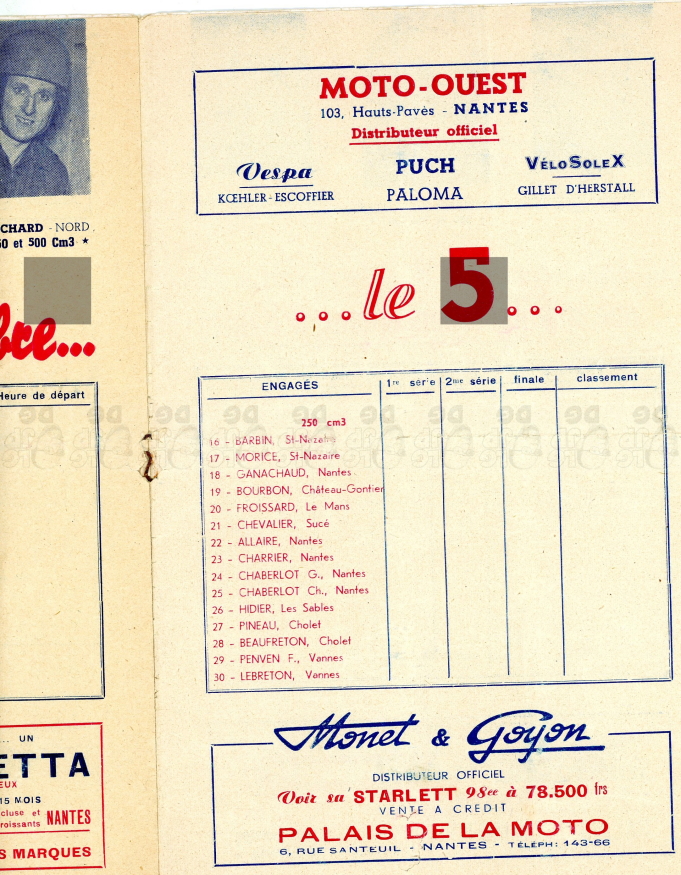 CHARD - NORD
50 et 500 Cm3 ★
bre...
Heure de départ
... UN
ETTA
EUX
15 MOIS
cluse et
roissants NANTES
S MARQUES
MOTO-OUEST
103, Hauts-Pavés - NANTES
Distributeur officiel
Vespa PUCH VÉLOSOLEX
KŒHLER-ESCOFFIER PALOMA GILLET D'HERSTALL
...le 5...
ENGAGÉS 1re série 2me série finale classement
250 cm3
16 - BARBIN, St-Nazaire
17 - MORICE, St-Nazaire
18 - GANACHAUD, Nantes
19 - BOURBON, Château-Gontier
20 - FROISSARD, Le Mans
21 - CHEVALIER, Sucé
22 - ALLAIRE, Nantes
23 - CHARRIER, Nantes
24 - CHABERLOT G., Nantes
25 - CHABERLOT Ch., Nantes
26 - HIDIER, Les Sables
27 - PINEAU, Cholet
28 - BEAUFRETON, Cholet
29 - PENVEN F., Vannes
30 - LEBRETON, Vannes
Monet & Goyon
DISTRIBUTEUR OFFICIEL
Voir sa STARLETT 98cc à 78.500 frs
VENTE A CREDIT
PALAIS DE LA MOTO
6, RUE SANTEUIL - NANTES - TÉLÉPH: 143-66